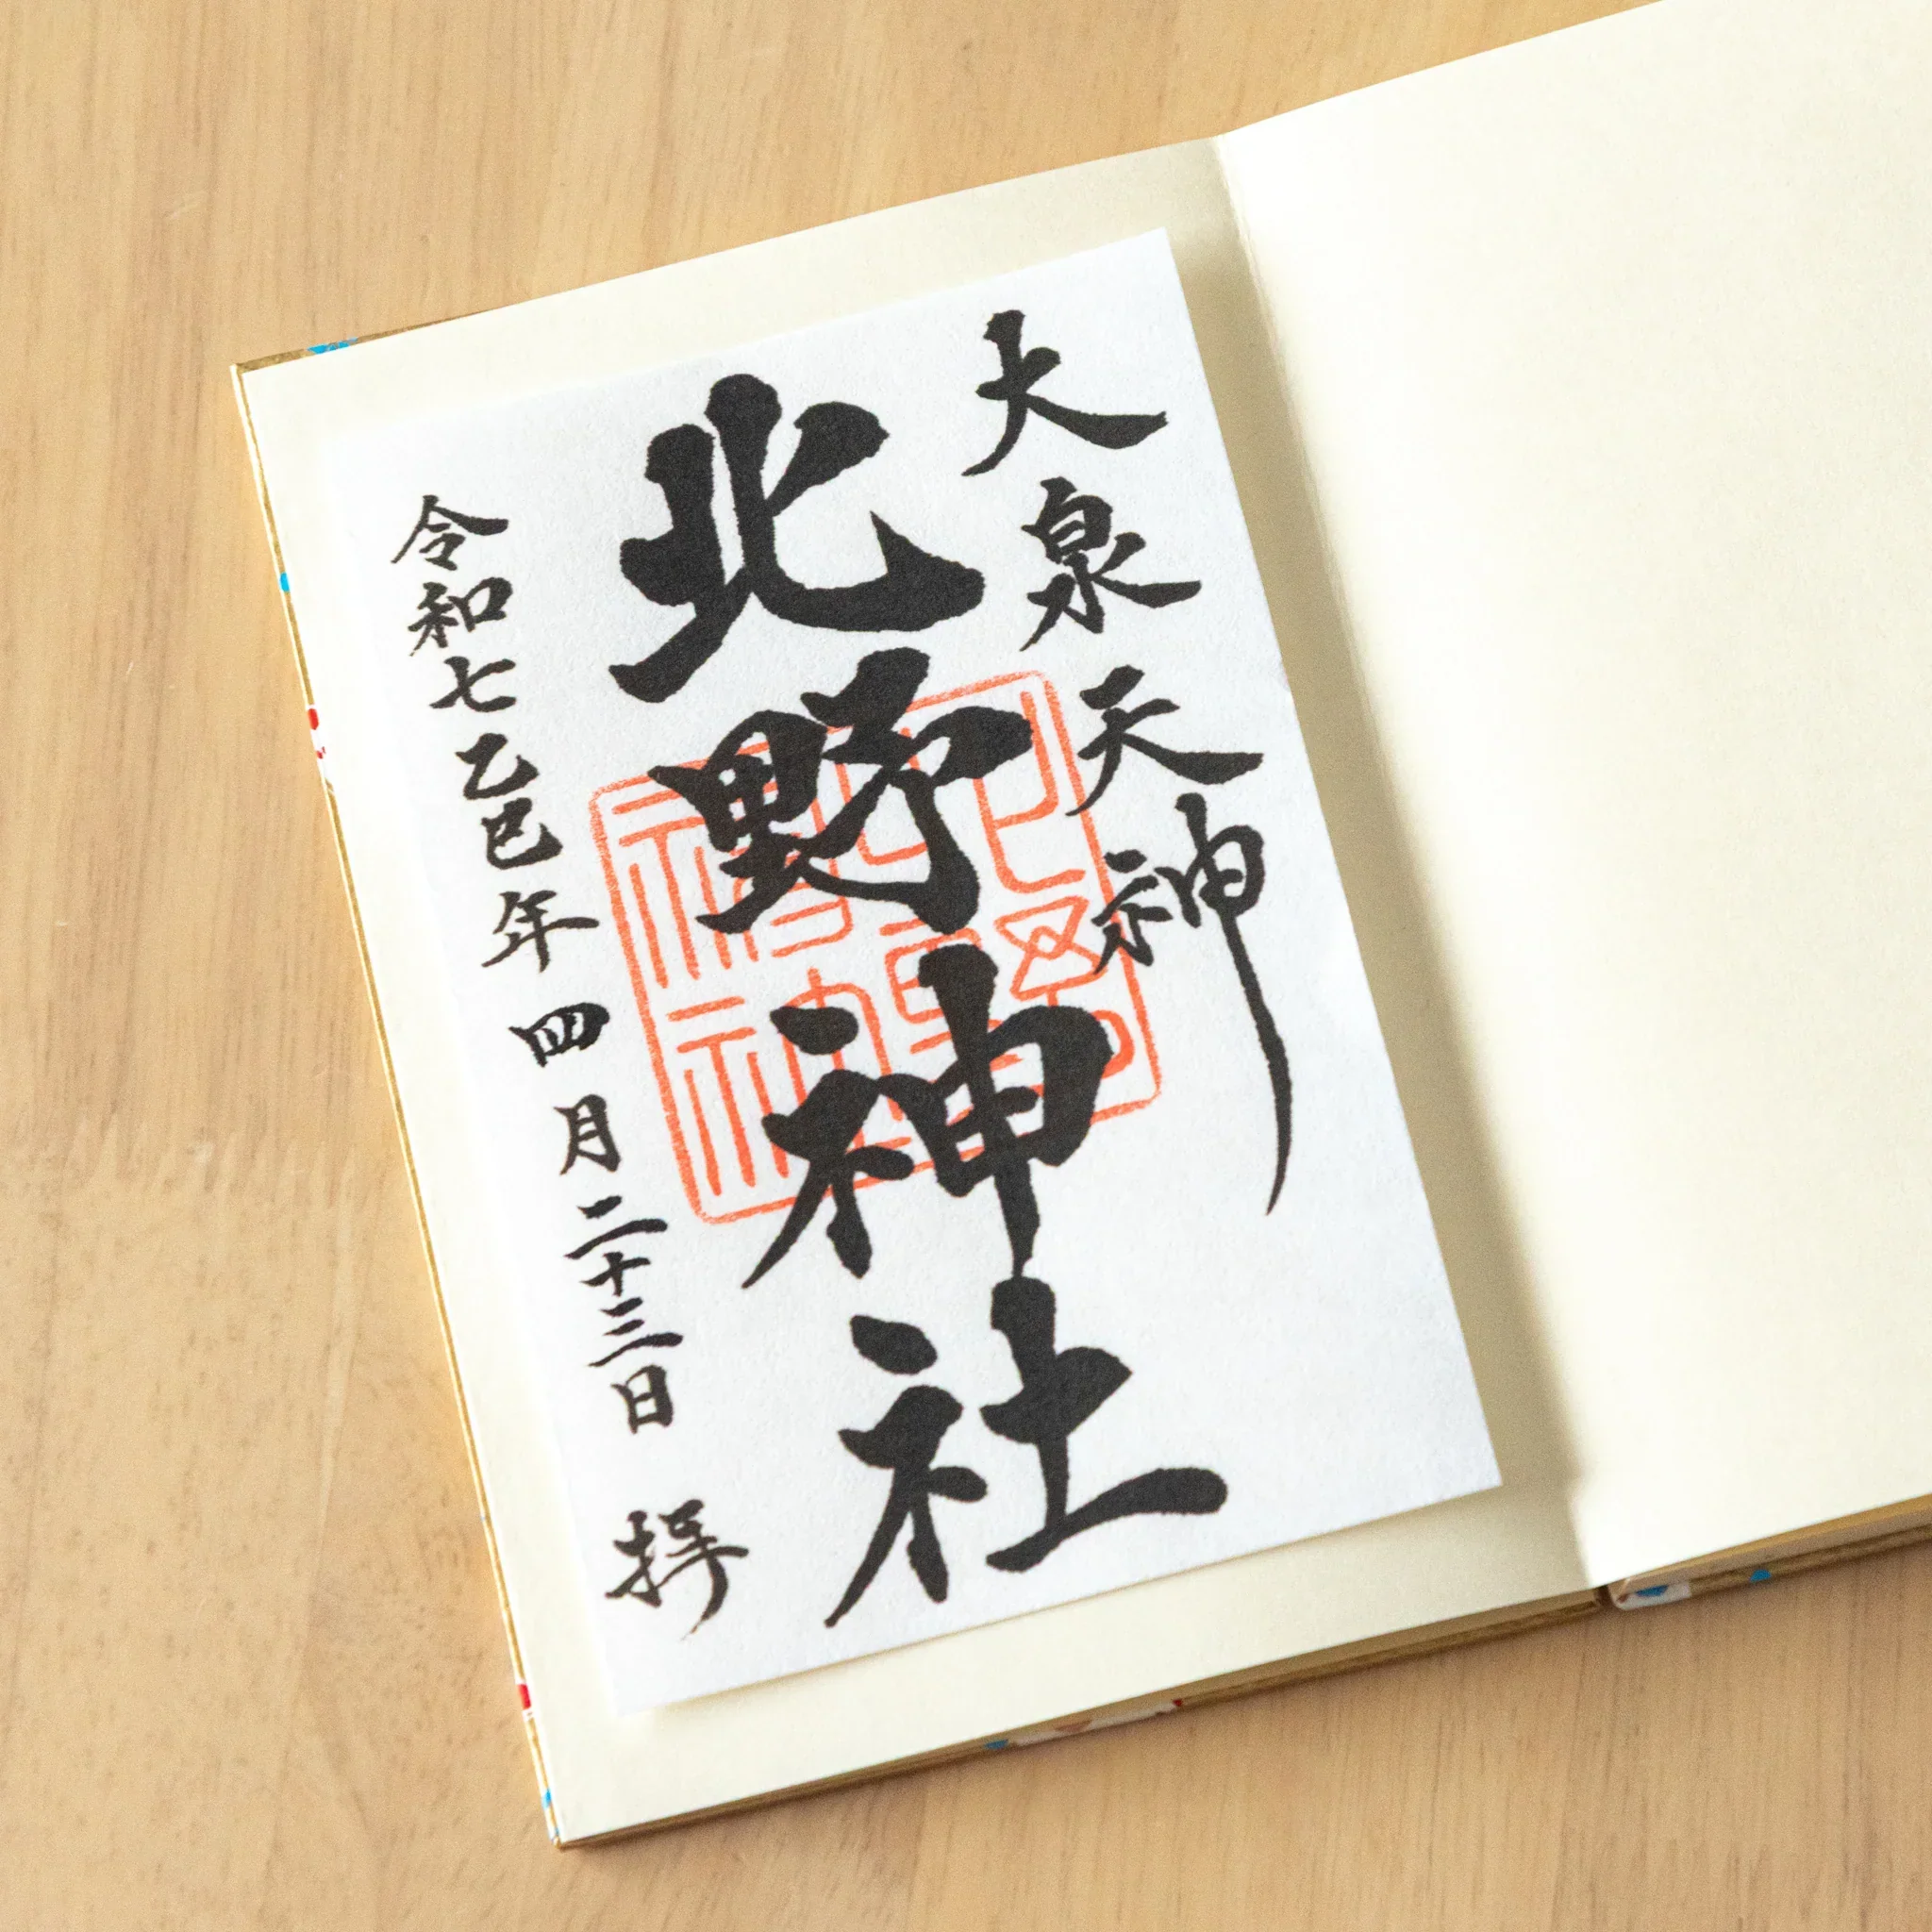 大泉天神
北野神社
令和七乙巳年 四月二十三日 拝